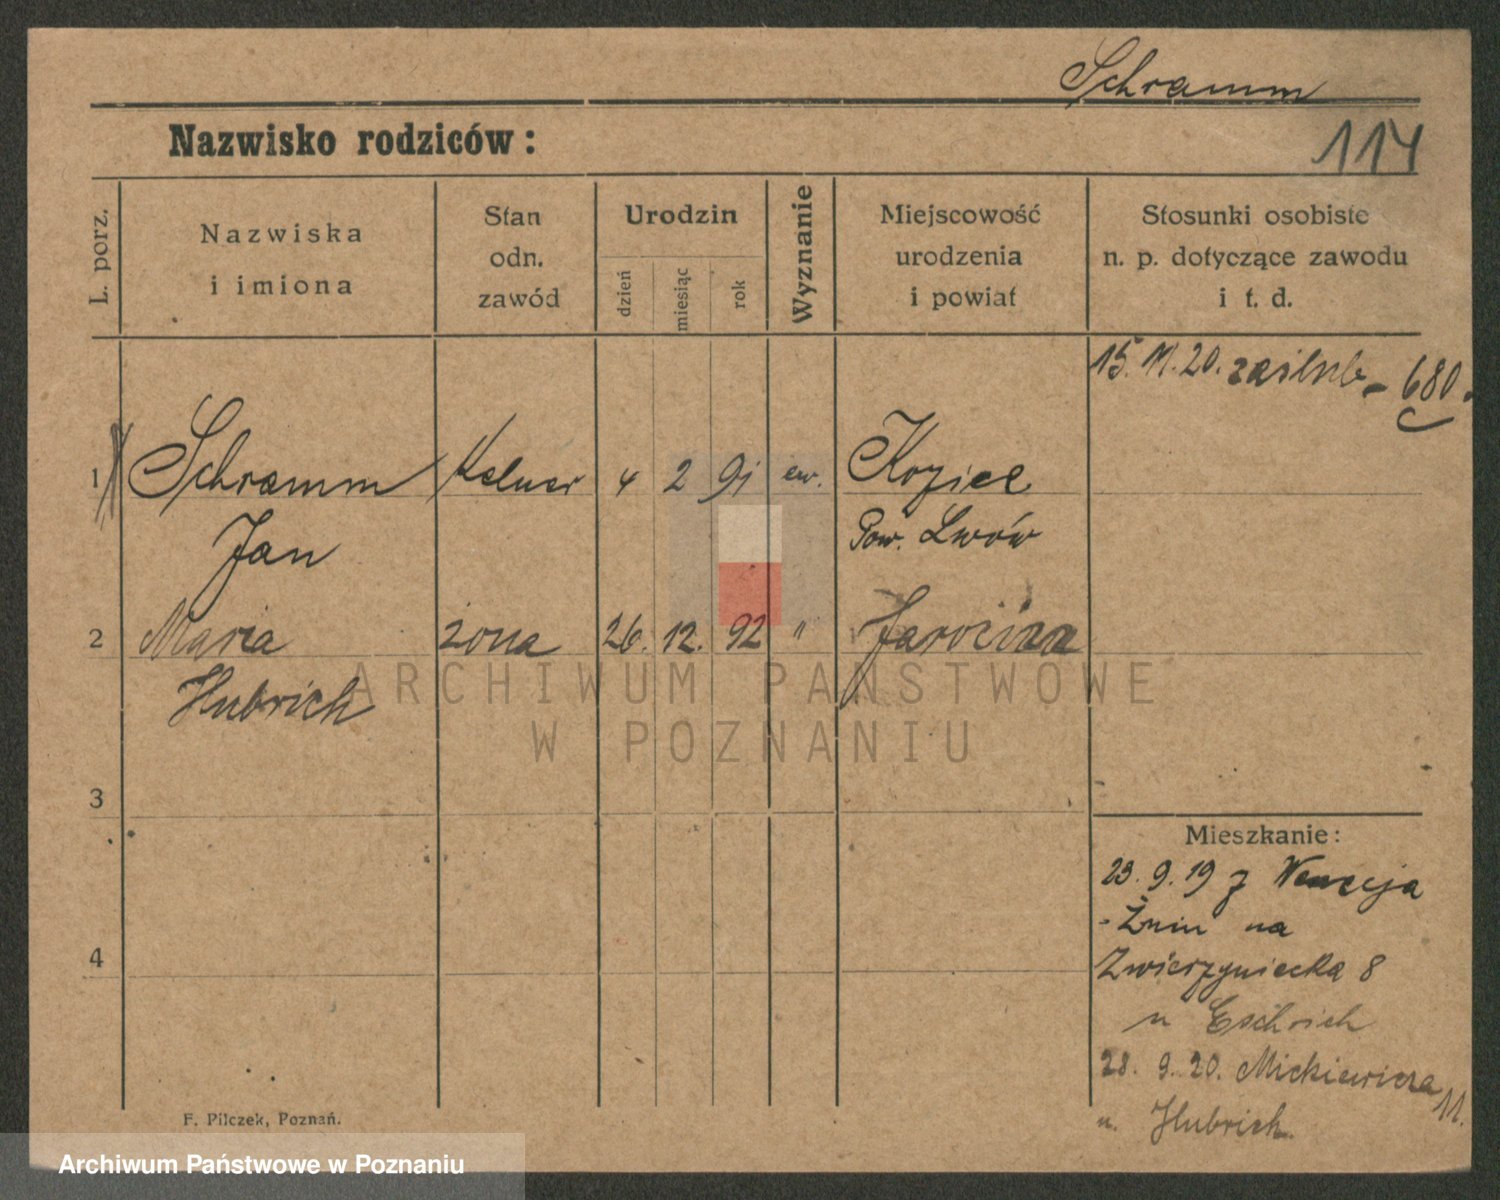 Schramm
Nazwisko rodziców:
114
L. porz.
Nazwiska
i imiona
Stan
odn.
zawód
Urodzin
dzień
miesiąc
rok
Wyznanie
Miejscowość
urodzenia
i powiat
Stosunki osobiste
n. p. dotyczące zawodu
i t. d.
15. 11. 20. zaślub - 680.
1 Schramm Kelner 4 2 91 ew. Koziel
Jan Pow. Lwów
2 Maria żona 26. 12. 92 " Jarocin
Hubrich
ARCHIWUM PAŃSTWOWE
W POZNANIU
3
Mieszkanie:
23. 9. 19 z Wenecja
- Żnin na
4
Zwierzyniecka 8
u Eschrich
28. 9. 20. Mickiewicza 11.
u. Hubrich.
F. Pilczek, Poznań.
Archiwum Państwowe w Poznaniu